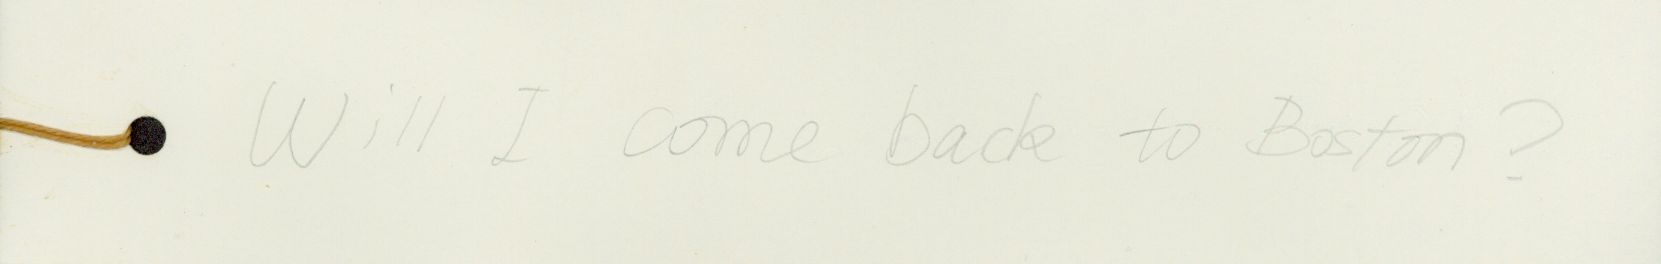 Will I come back to Boston?